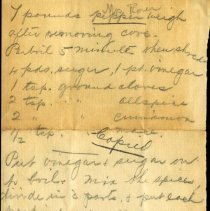 Mrs Roer
7 pounds pepper weigh
after removing core.
Parboil 5 minute then shred
4 pds. sugar 1 pt. vinegar
1 tsp. ground cloves
2 tsp. " allspice
2 " " cinnamon
1/2 tsp. " mace
Copied
Put vinegar & sugar on
to boil. Mix the spices
divide in 3 parts, & put each